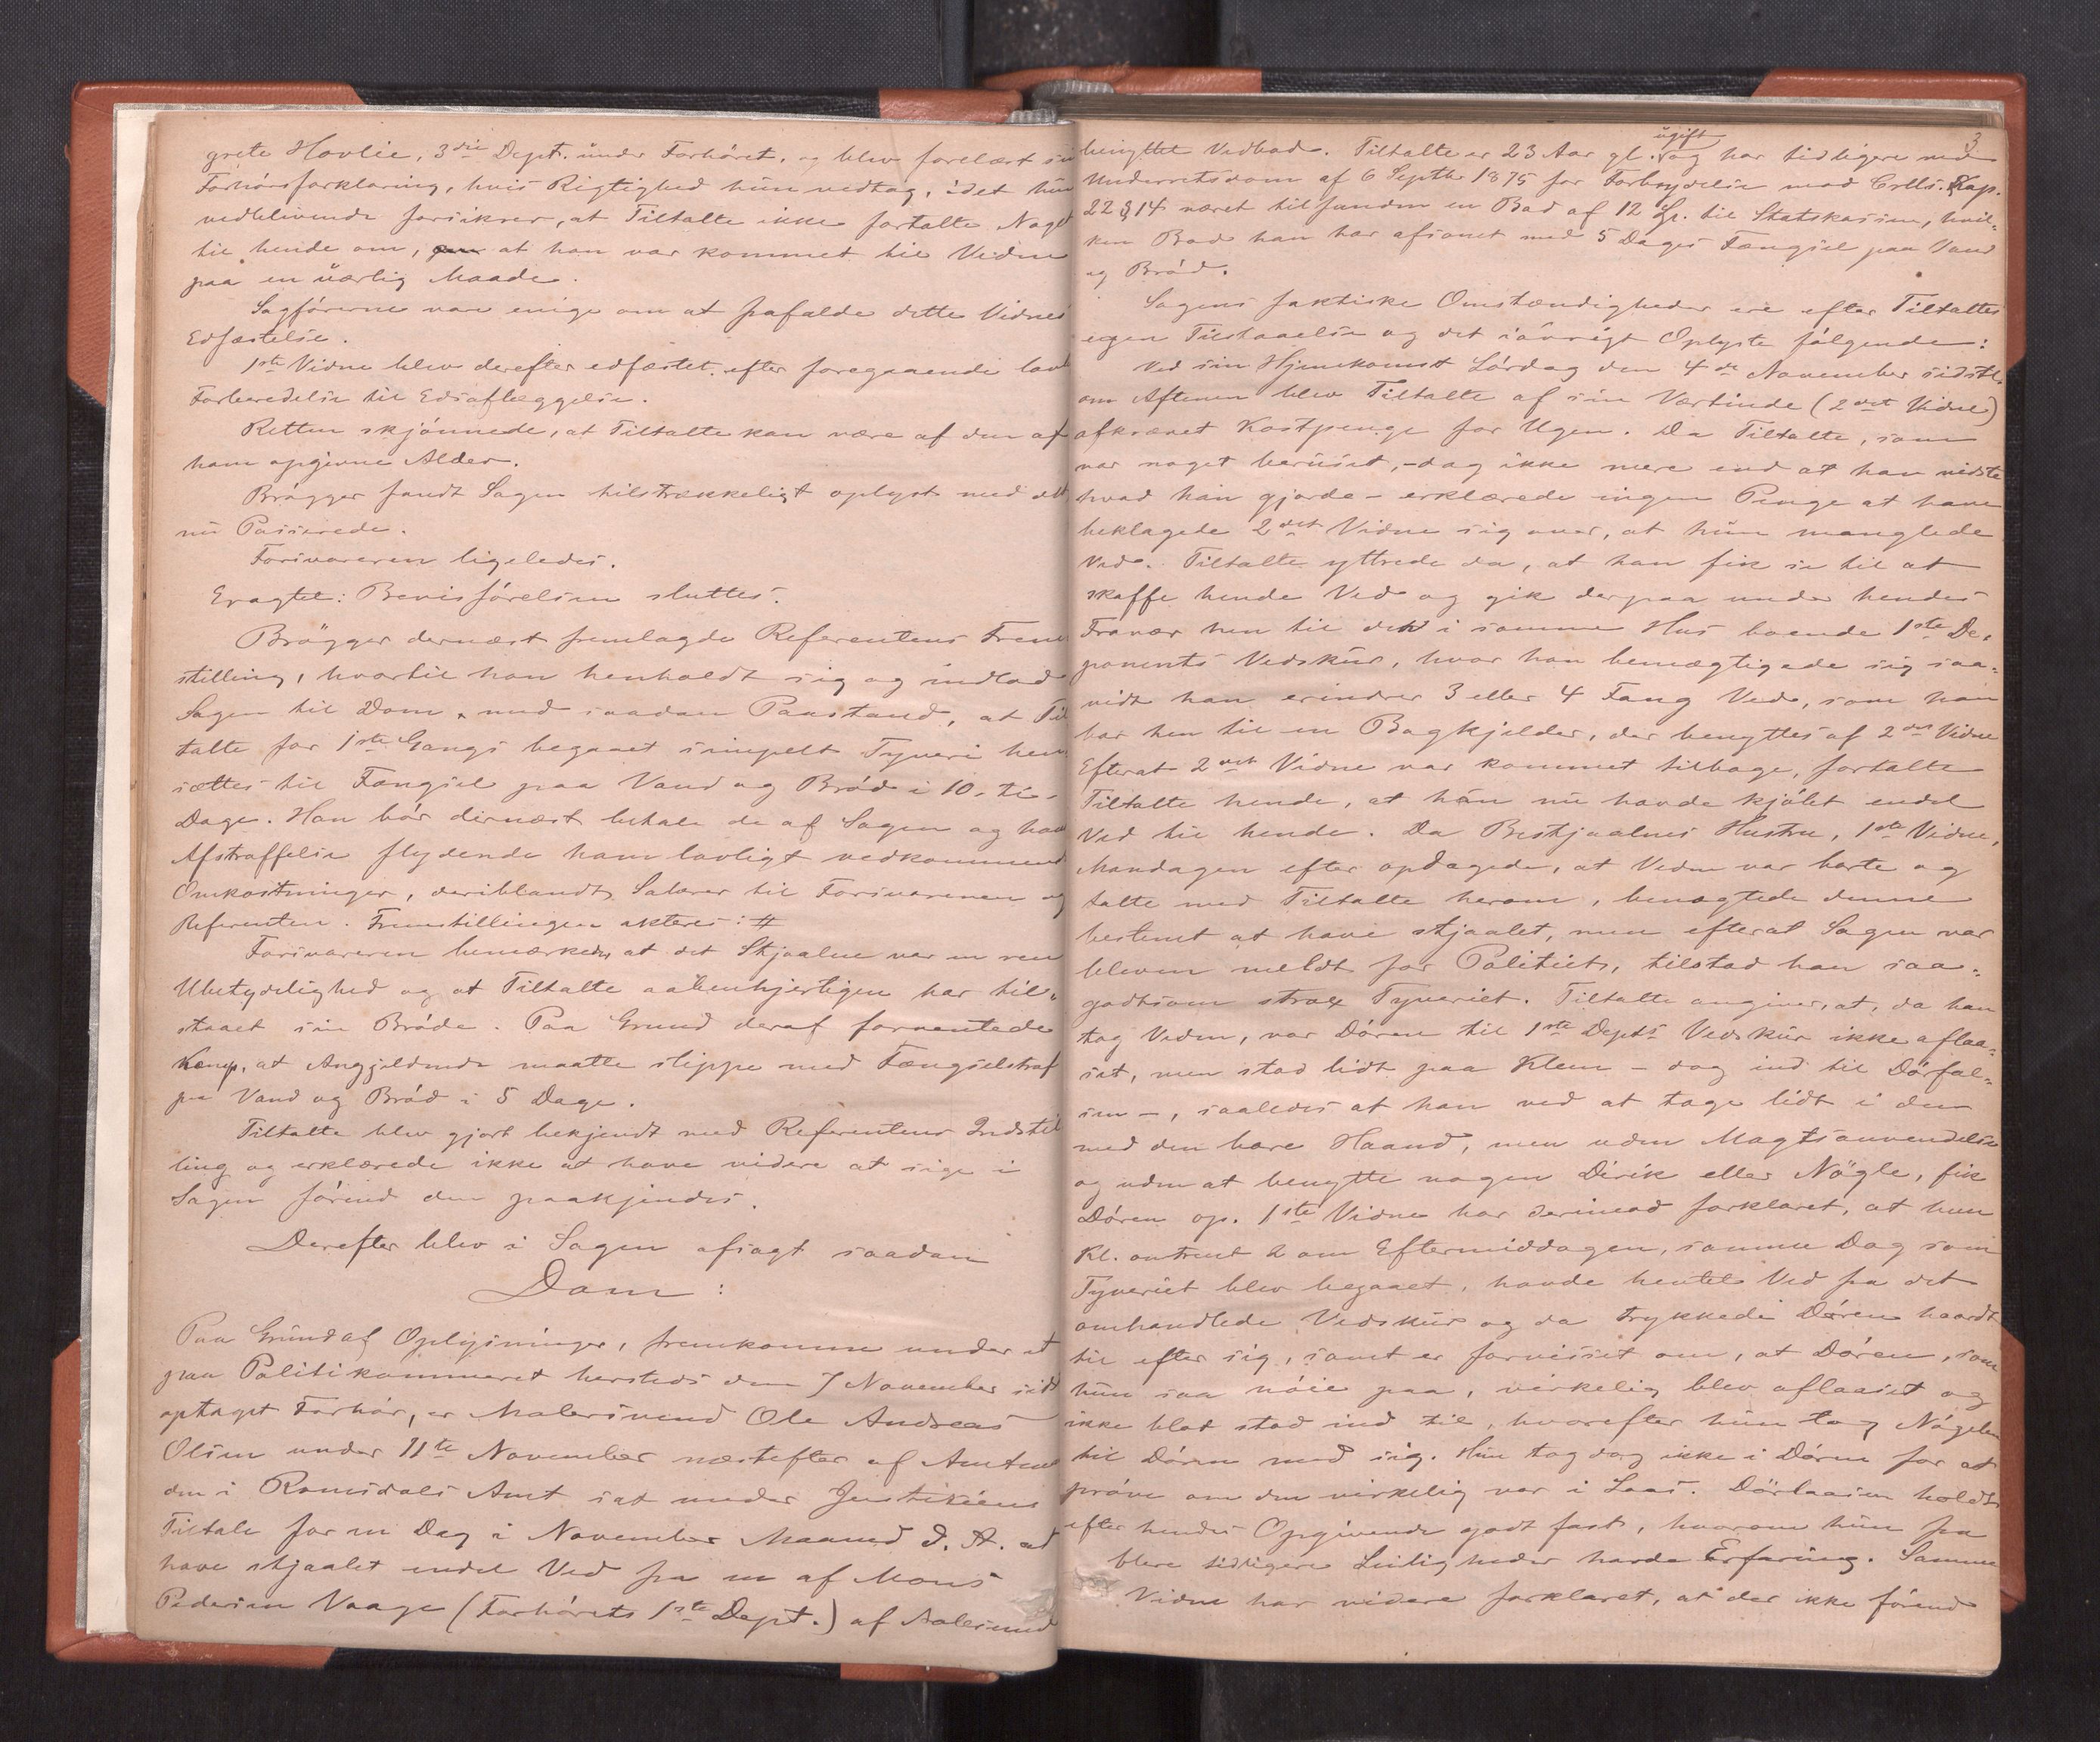 grete Hovlie, 3die Dept. under Forhöret, og blev forelæst sin
Forhörsforklaring, hvis Rigtighed hun vedtog, idet hun
vedblivende forsikrer, at Tiltalte ikke fortalte Noget
til hende om, at han var kommet til Veden
paa en uærlig Maade.
Sagförerne var enige om at frafalde dette Vidnes
Edfæstelse.
1ste Vidne blev derefter edfæstet efter foregaaende lovl
Forberedelse til Edsaflæggelse.
Retten skjönnede, at Tiltalte kan være af den af
ham opgivne Alder.
Brögger fandt Sagen tilstrækkeligt oplyst med det
nu Passerede.
Forsvareren ligeledes.
Eragtet: Bevisförelsen sluttes.
Brögger dernæst fremlagde Referentens Frem
stilling, hvortil han henholdt sig og indlod
Sagen til Dom, med saadan Paastand, at Til
talte for 1ste Gangs begaaet simpelt Tyveri hen
sættes til Fængsel paa Vand og Bröd i 10 - ti -
Dage. Han bör dernæst betale de af Sagen og hans
Afstraffelse flydende ham lovligt vedkommende
Omkostninger, deriblandt Salærer til Forsvareren og
Referenten. Fremstillingen akteres: #
Forsvareren bemærkede, at det Stjaalne var en ren
Ubetydelighed og at Tiltalte aabenhjertigen har til-
staaet sin Bröde. Paa Grund deraf forventede
Komp. at Angjeldende maatte slippe med Fængselstraf
paa Vand og Bröd i 5 Dage.
Tiltalte blev gjort bekjendt med Referentens Indstil
ling og erklærede ikke at have videre at sige i
Sagen förend den paakjendes.
Derefter blev i Sagen afsagt saadan
Dom:
Paa Grund af Oplysninger, fremkomne under et
paa Politikammeret hersteds den 7 November sidst
optaget Forhör, er Malersvend Ole Andreas
Olsen under 11te November næstefter af Amtman
den i Romsdals Amt sat under Justitiens
Tiltale for en Dag i November Maaned d. A. at
have stjaalet endel Ved fra en af Mons
Pedersen Vaage (Forhörets 1ste Dept.) af Aalesund
3
benyttet Vedbod. Tiltalte er 23 Aar gl. ugift og har tidligere ved
Underretsdom af 6 Septbr 1875 for Forbrydelse mod Crlls. Kap.
22 § 14 været tilfunden en Bod af 12 Kr. til Statskassen, hvil-
ken Bod han har afsonet med 5 Dages Fængsel paa Vand
og Bröd.
Sagens faktiske Omstændigheder ere efter Tiltaltes
egen Tilstaaelse og det iövrigt Oplyste fölgende:
Ved sin Hjemkomst Lördag den 4de November sidstl.
om Aftenen blev Tiltalte af sin Værtinde (2det Vidne)
afkrævet Kostpenge for Ugen. Da Tiltalte, som
var noget beruset, - dog ikke mere end at han vidste
hvad han gjorde - erklærede ingen Penge at have
beklagede 2det Vidne sig over, at hun manglede
Ved. Tiltalte yttrede da, at han fik se til at
skaffe hende Ved og gik derpaa under hendes
Fravær hen til det i samme Hus boende 1ste De-
ponents Vedskur, hvor han bemægtigede sig saa-
vidt han erindrer 3 eller 4 Fang Ved, som han
bar hen til en Bagkjelder, der benyttes af 2det Vidne
Efterat 2det Vidne var kommet tilbage, fortalte
Tiltalte hende, at han nu havde kjöbt endel
Ved til hende. Da Bestjaalnes Hustru, 1ste Vidne,
Mandagen efter opdagede, at Veden var borte og
talte med Tiltalte herom, benægtede denne
bestemt at have stjaalet, men efterat Sagen var
bleven meldt for Politiet, tilstod han saa-
godtsom strax Tyveriet. Tiltalte angiver, at, da han
tog Veden, var Dören til 1ste Depts Vedskur ikke aflaa-
set, men stod lidt paa Klem - dog ind til Dörfal-
sen -, saaledes at han ved at tage lidt i den
med den bare Haand, men uden Magtsanvendelse
og uden at benytte nogen Dirik eller Nögle, fik
Dören op. 1ste Vidne har derimod forklaret, at hun
Kl. omtrent 2 om Eftermiddagen, samme Dag som
Tyveriet blev begaaet, havde hentet Ved fra det
omhandlede Vedskur og da trykkede Dören haardt
til efter sig, samt er forvisset om, at Dören, som
hun saa nöie paa, virkelig blev aflaaset og
ikke blot stod ind til, hvorefter hun tog Nögelen
til Dören med sig. Hun tog dog ikke i Dören for at
pröve om den virkelig var i Laas. Dörlaasen holdt
efter hendes Opgivende godt fast, hvorom hun fra
flere tidligere Leiligheder havde Erfaring. Samme
Vidne har videre forklaret, at der ikke förend